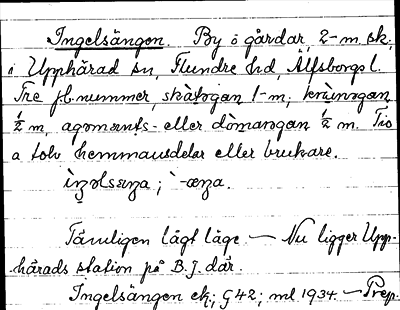 Ingelsängen. By ö gårdar, 2-m. sk,
i Upphärad sn, Flundre hd, Älfsborgs l.
Tre jb.nummer, skàtogan 1-m,
½ m, eller ½ m. Tio
a tolv hemmansdelar eller brukare.
Tämligen lågt läge. — Nu ligger Upp-
härads station på B.J. där.
Ingelsängen ek; G42; ml 1934. — Prep.